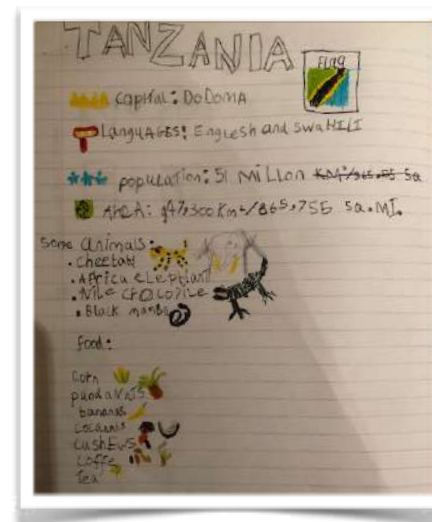 TANZANIA
FLag
capital: DoDomA
LanguAGES: EngLesh and swaHiLI
population: 51 MiLLon
AREA: 947,300 Km²/865,755 sq.MI.
Some animals:
• cheetah
• Africa eLephant
• NiLe crocodiLe
• BLack mamba
food:
Corn
bananas
cashEws
coffe
Tea